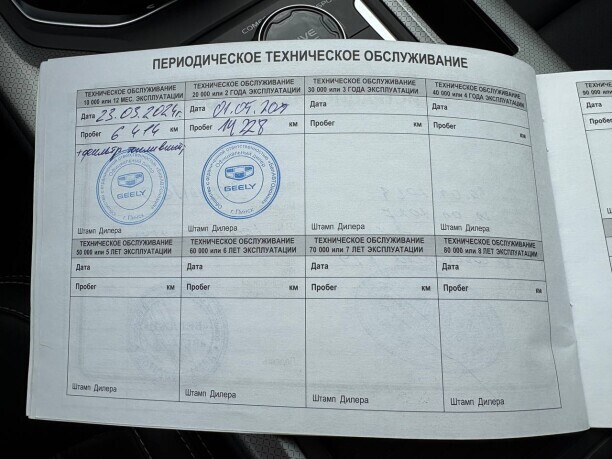 ПЕРИОДИЧЕСКОЕ ТЕХНИЧЕСКОЕ ОБСЛУЖИВАНИЕ
ТЕХНИЧЕСКОЕ ОБСЛУЖИВАНИЕ
10 000 или 12 МЕС. ЭКСПЛУАТАЦИИ
Дата 23.03.2024г.
Пробег 6 414 км
+фильтр топливный
GEELY
г. Пинск
Штамп Дилера
ТЕХНИЧЕСКОЕ ОБСЛУЖИВАНИЕ
20 000 или 2 ГОДА ЭКСПЛУАТАЦИИ
Дата 01.09.
Пробег км
GEELY
г. Пинск
Штамп Дилера
ТЕХНИЧЕСКОЕ ОБСЛУЖИВАНИЕ
30 000 или 3 ГОДА ЭКСПЛУАТАЦИИ
Дата
Пробег км
Штамп Дилера
ТЕХНИЧЕСКОЕ ОБСЛУЖИВАНИЕ
40 000 или 4 ГОДА ЭКСПЛУАТАЦИИ
Дата
Пробег км
Штамп Дилера
ТЕХНИЧЕСКОЕ ОБСЛУЖИВАНИЕ
50 000 или 5 ЛЕТ ЭКСПЛУАТАЦИИ
Дата
Пробег км
Штамп Дилера
ТЕХНИЧЕСКОЕ ОБСЛУЖИВАНИЕ
60 000 или 6 ЛЕТ ЭКСПЛУАТАЦИИ
Дата
Пробег км
Штамп Дилера
ТЕХНИЧЕСКОЕ ОБСЛУЖИВАНИЕ
70 000 или 7 ЛЕТ ЭКСПЛУАТАЦИИ
Дата
Пробег км
Штамп Дилера
ТЕХНИЧЕСКОЕ ОБСЛУЖИВАНИЕ
80 000 или 8 ЛЕТ ЭКСПЛУАТАЦИИ
Дата
Пробег км
Штамп Дилера